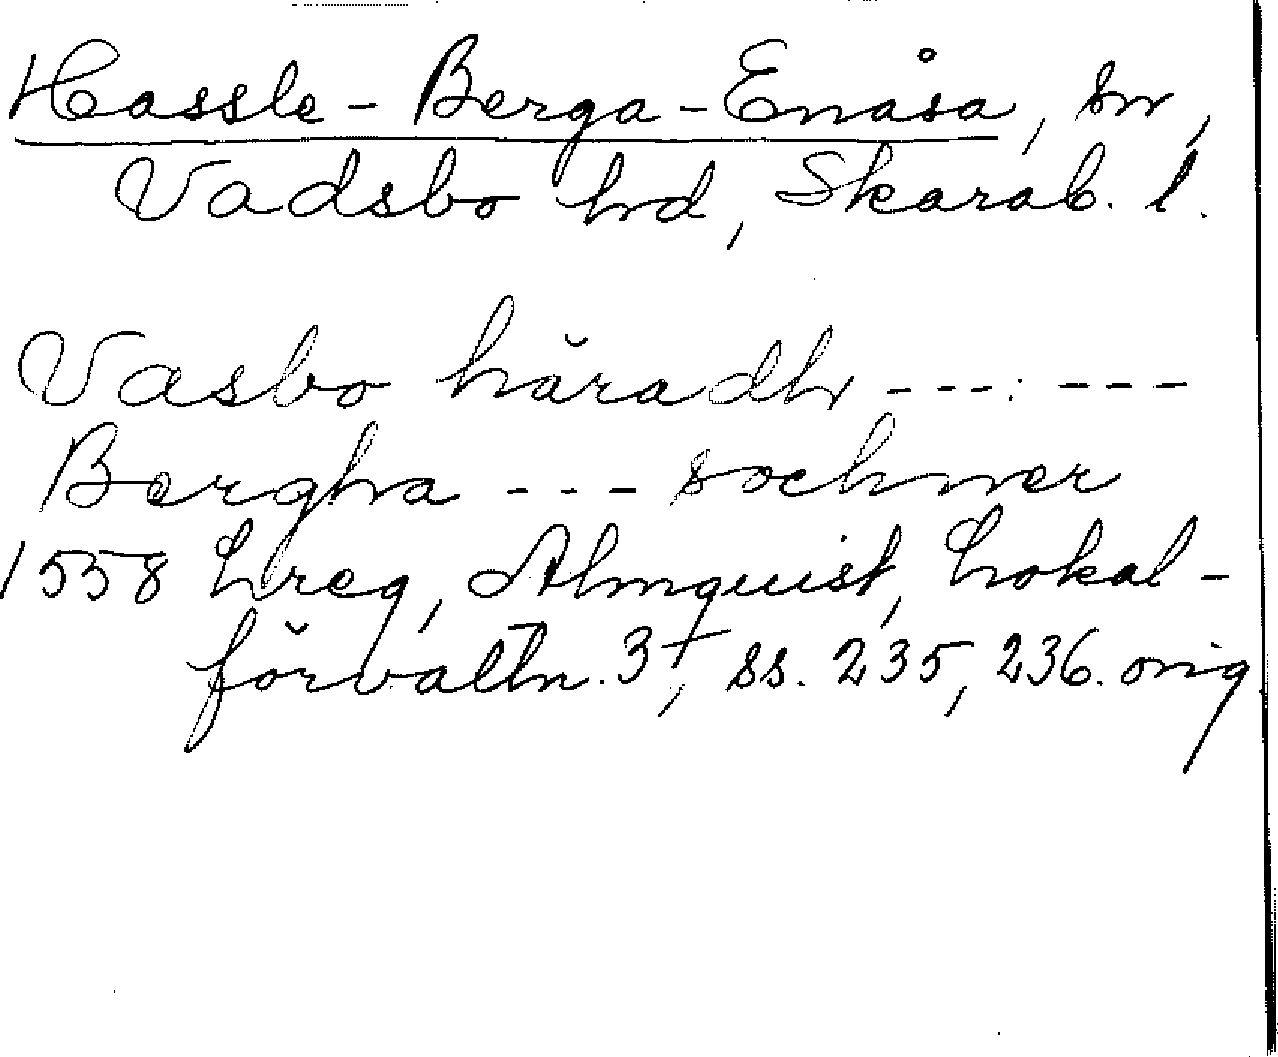 Hassle-Berga-Enåsa, sn,
Vadsbo hd, Skarab. l.
Vasbo häradh ---: ---
Bergha --- sochner
1558 Lreg, Almquist, Lokal-
förvaltn. 3†, ss. 235, 236. orig